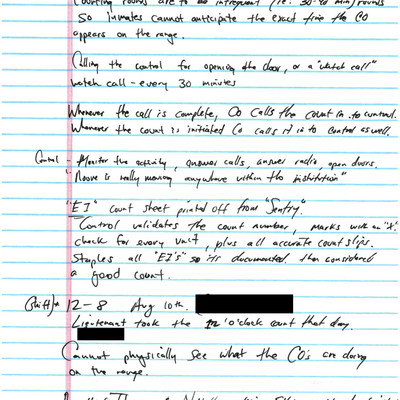 Counting rounds are to be infrequent (i.e. 30-40 min) rounds
so inmates cannot anticipate the exact time the CO
appears on the range.
Calling the control for opening the door, or a "watch call"
watch call - every 30 minutes
Whenever the call is complete, CO calls the count in to control.
Whenever the count is initiated Co calls it in to control as well.
Control - Monitor the activity, answer calls, answer radio, open doors.
"Noone is really moving anywhere within the institution"
"EI" count sheet printed off from "Sentry".
Control validates the count number, marks with an "X"
check for every unit, plus all accurate count slips.
Staples all "EI's" so its documented then considered
a good count.
(Shift)* 12-8 Aug 10th.
Lieutenant took the 12 o'clock count that day.
Cannot physically see what the CO's are doing
on the range.